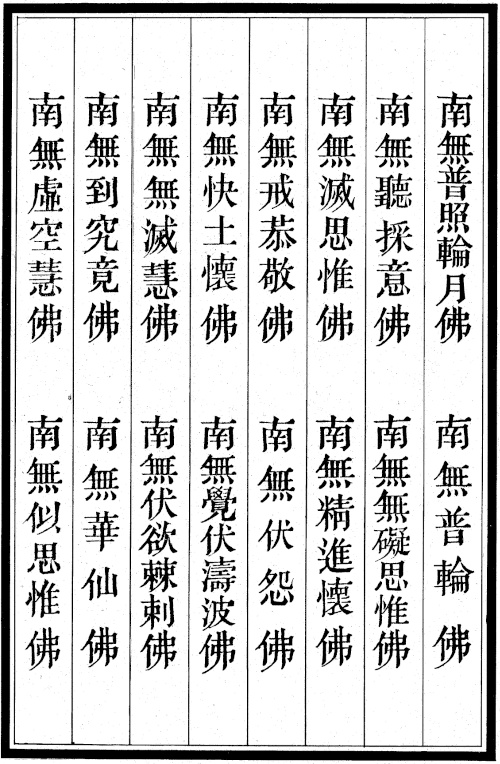 南無普照輪月佛　南無普輪佛
南無聽採意佛　南無無礙思惟佛
南無滅思惟佛　南無精進懷佛
南無戒恭敬佛　南無伏怨佛
南無快士懷佛　南無覺伏濤波佛
南無無滅慧佛　南無伏欲棘刺佛
南無到究竟佛　南無華仙佛
南無虛空慧佛　南無似思惟佛